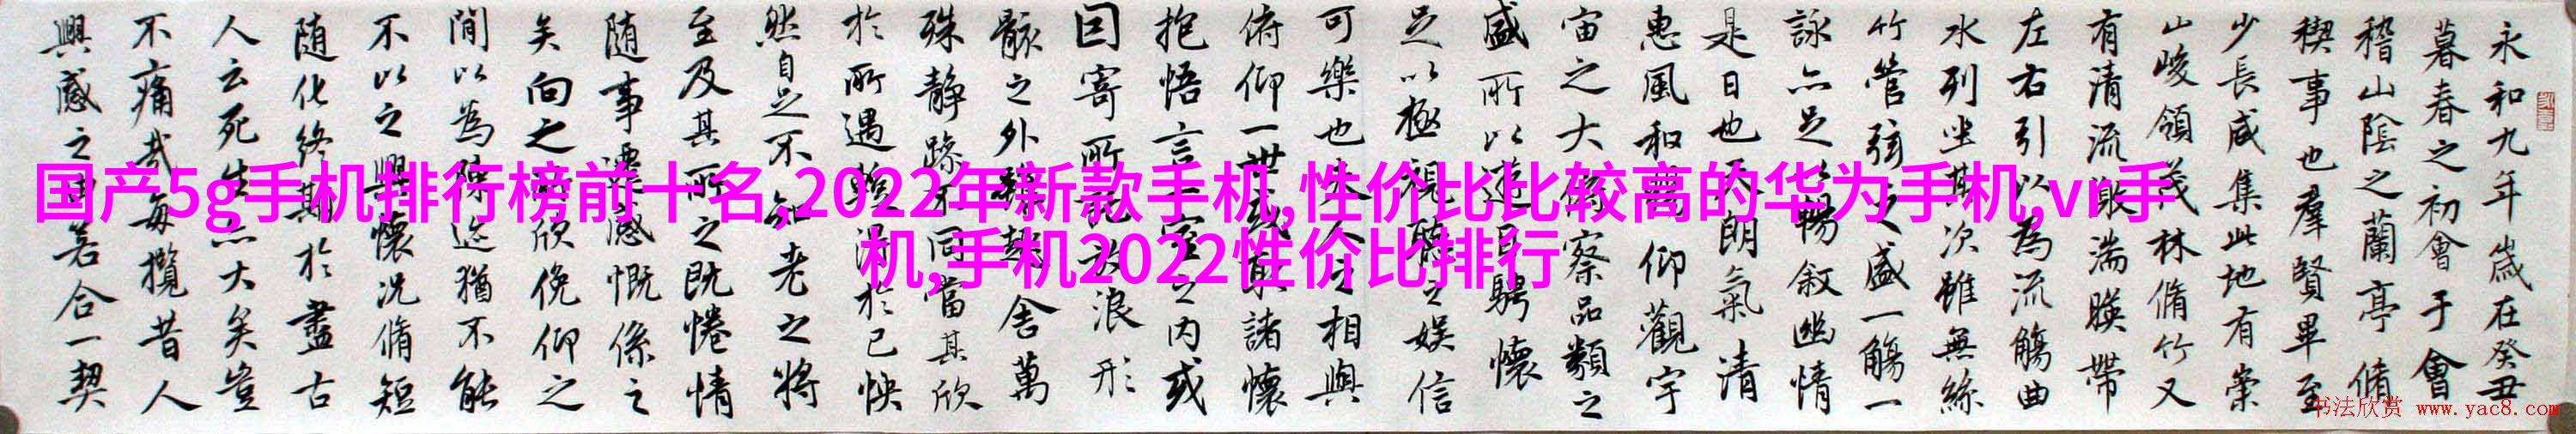 永和九年歲在癸丑
暮春之初會于會
稽山陰之蘭亭脩
稧事也羣賢畢至
少長咸集此地有崇
山峻領茂林脩竹又
有清流激湍暎帶
左右引以為流觴曲
水列坐其次雖無絲
竹管弦之盛一觴一
詠亦足以暢敘幽情
是日也天朗氣清
惠風和暢仰觀宇
宙之大俯察品類之
盛所以遊目騁懷
足以極視聽之娛信
可樂也夫人之相與
俯仰一世或取諸懷
抱悟言一室之內或
因寄所託放浪形
骸之外雖趣舍萬
殊靜躁不同當其欣
於所遇暫得於己怏
然自足不知老之將
至及其所之既惓情
随事遷感慨係之
矣向之所欣俛仰之
閒以為陳迹猶不能
不以之興懷況脩短
随化終期於盡古
人云死生亦大矣豈
不痛哉每攬昔人
興感之由若合一契
国产5g手机排行榜前十名,2022年新款手机,性价比比较高的华为手机,vr手
机,手机2022性价比排行
书法欣赏 www.yac8.com